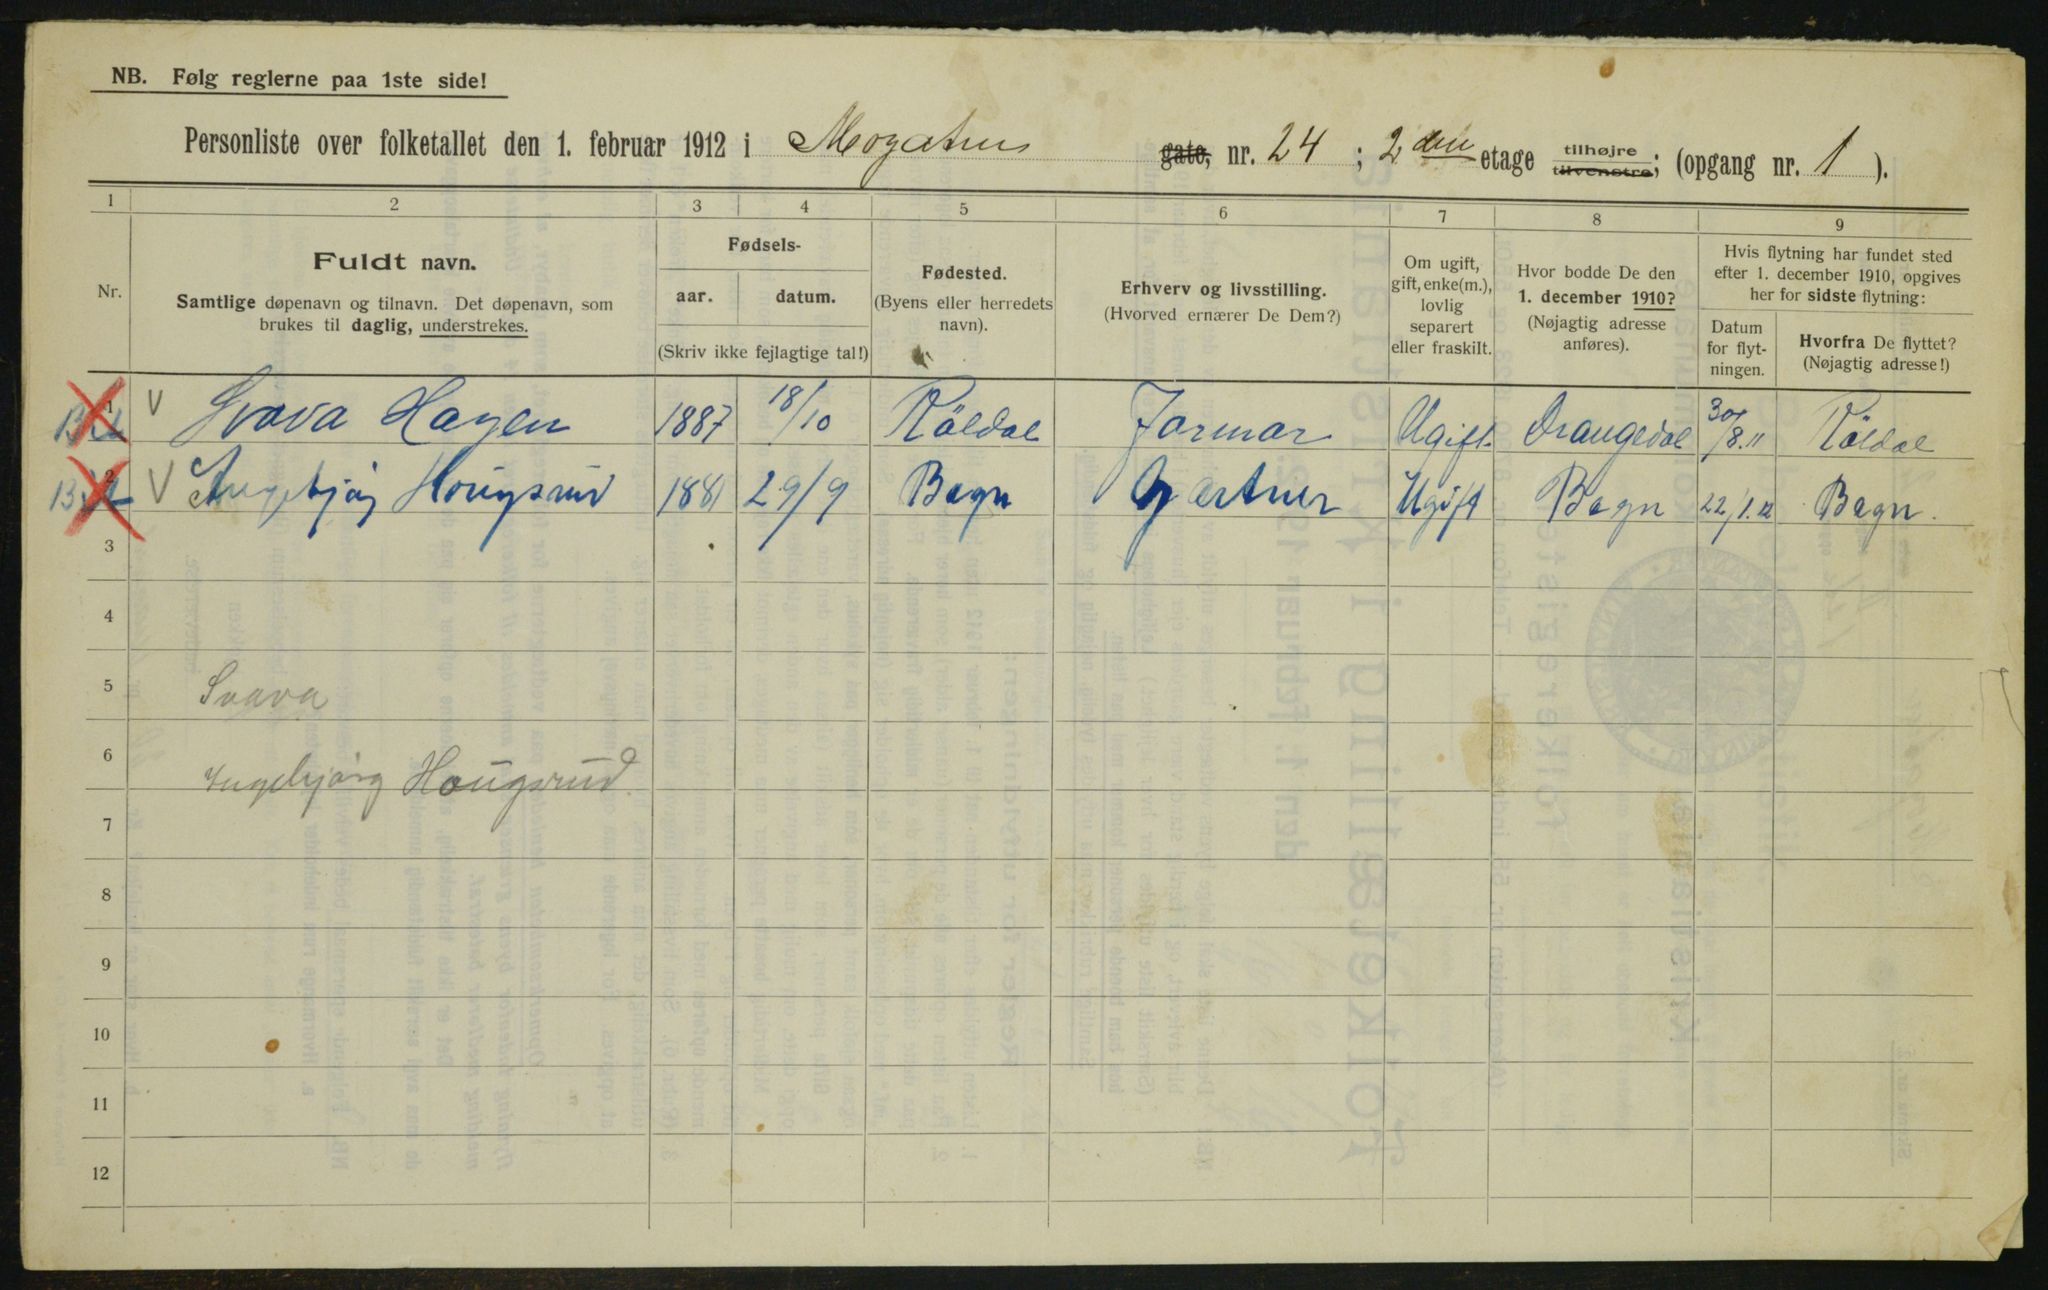 NB. Følg reglerne paa 1ste side!
Personliste over folketallet den 1. februar 1912 i Mogatens gate, nr. 24 ; 2 den etage tilhøjre tilvenstre; (opgang nr. 1 ).
1 2 3 4 5 6 7 8 9
Nr.
Fuldt navn.
Samtlige døpenavn og tilnavn. Det døpenavn, som
brukes til daglig, understrekes.
Fødsels-
aar. datum.
(Skriv ikke fejlagtige tal!)
Fødested.
(Byens eller herredets
navn).
Erhverv og livsstilling.
(Hvorved ernærer De Dem?)
Om ugift,
gift, enke(m.),
lovlig
separert
eller fraskilt.
Hvor bodde De den
1. december 1910?
(Nøjagtig adresse
anføres).
Hvis flytning har fundet sted
efter 1. december 1910, opgives
her for sidste flytning:
Datum
for flyt-
ningen.
Hvorfra De flyttet?
(Nøjagtig adresse!)
1 V Svava Hagen 1887 18/10 Röldal Jormor Ugift Drangedal 30/8.11 Röldal
2 V Ingebjörg Hougsrud 1881 29/9 Bagn Gartner Ugift Bagn 22/1.12 Bagn.
3
4
5 Svava
6 Ingebjörg Hougsrud
7
8
9
10
11
12